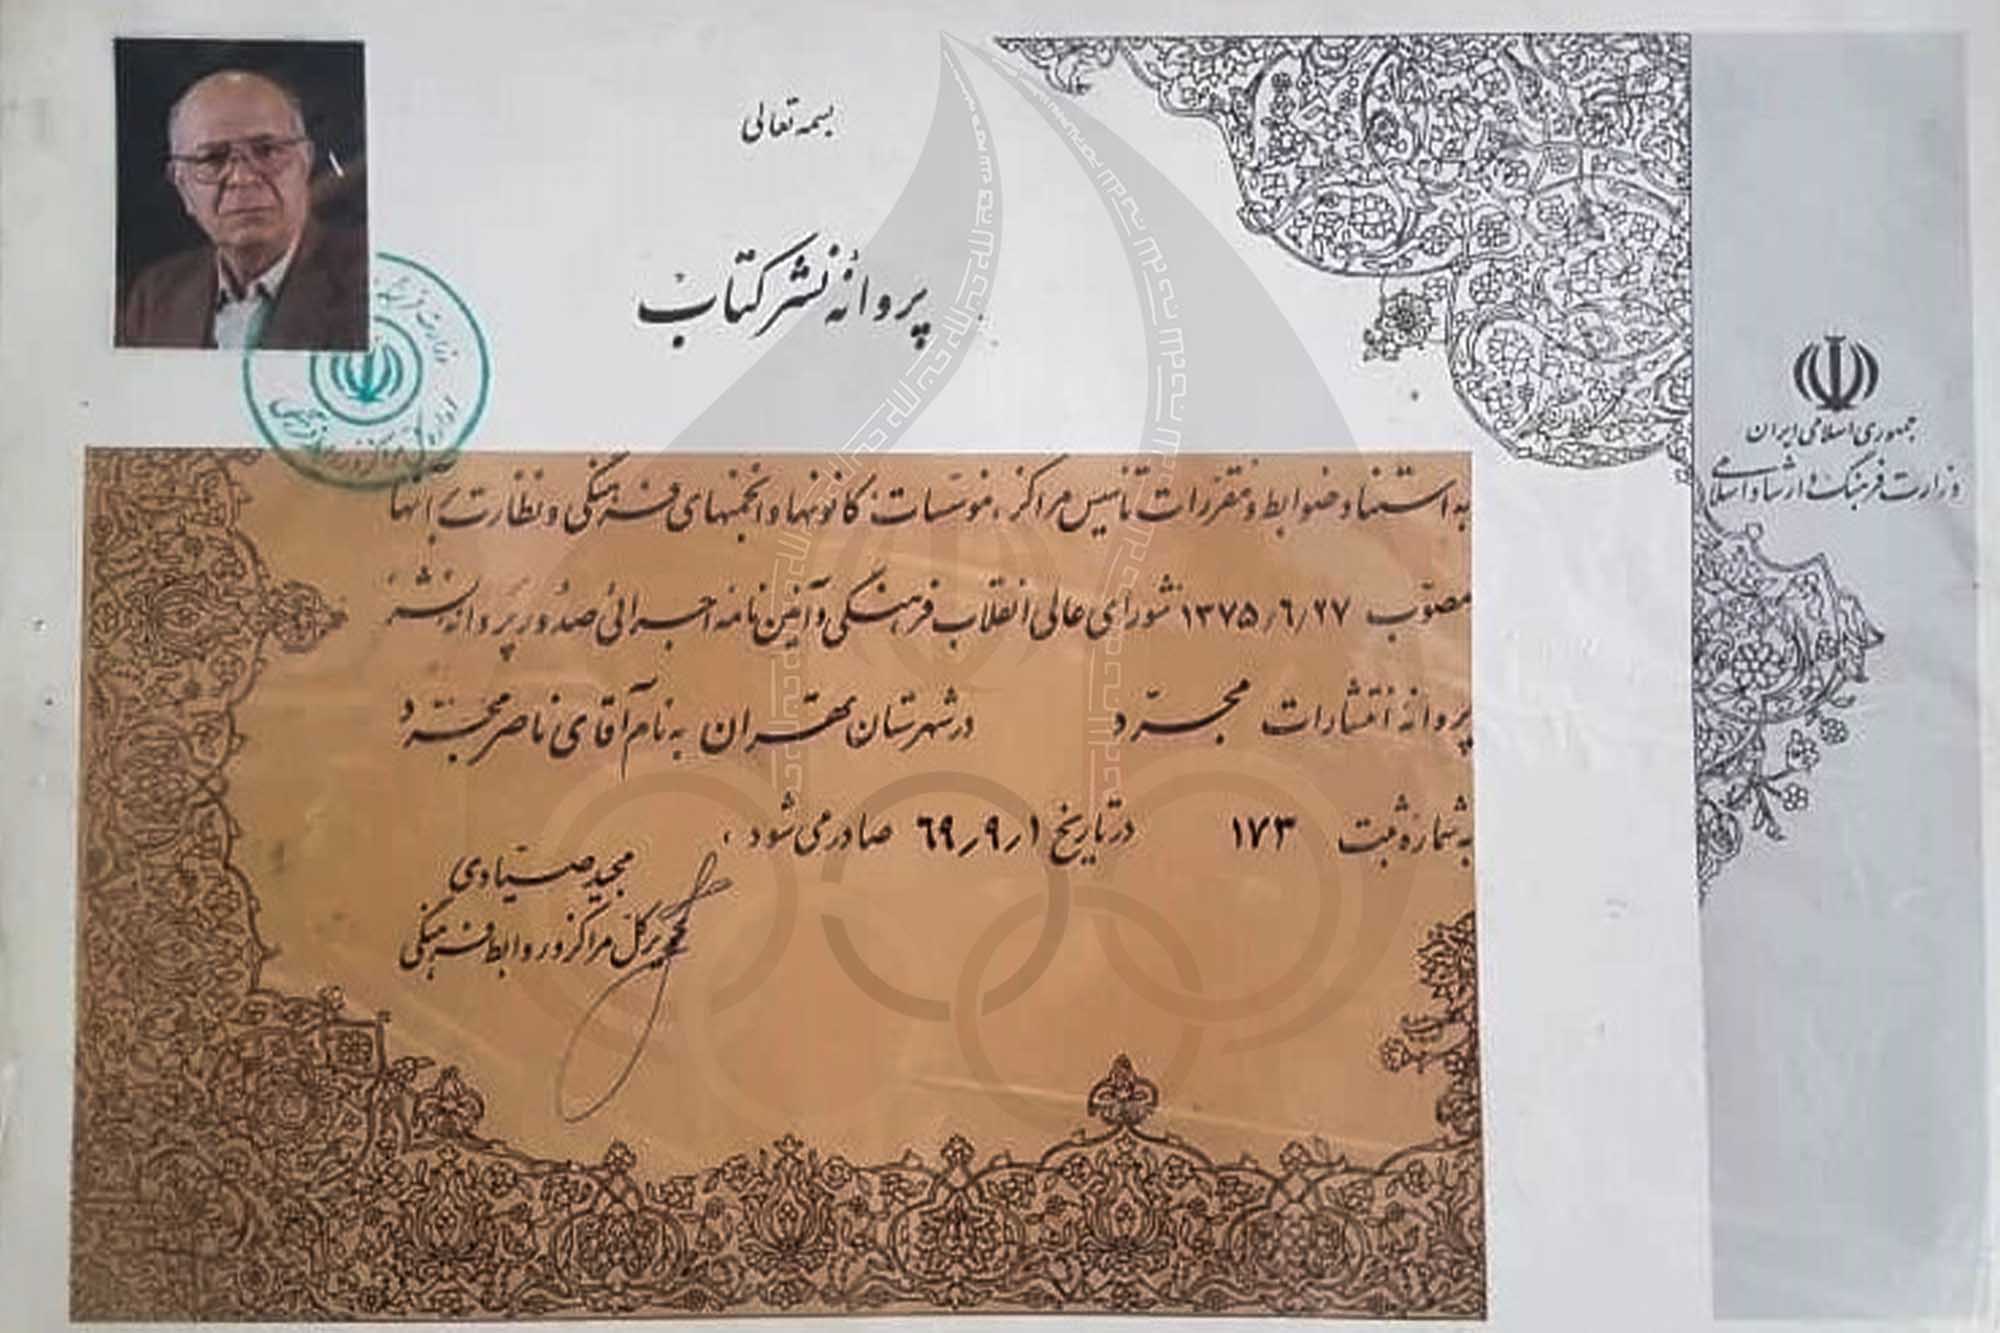 بسمه تعالی
پروانهٔ نشر کتاب
جمهوری اسلامی ایران
وزارت فرهنگ و ارشاد اسلامی
به استناد ضوابط و مقررات تأسیس مراکز، مؤسسات، کانونها و انجمنهای فرهنگی و نظارت بر آنها
مصوّب ۱۳۷۵/۶/۲۷ شورای عالی انقلاب فرهنگی و آئین نامه اجرائی صدور پروانه نشر
پروانه انتشارات مجرّد در شهرستان تهران به نام آقای ناصر مجرّد
به شماره ثبت ۱۷۳ در تاریخ ۶۹٫۹٫۱ صادر می شود،
مجید صیّادی
مدیرکل مراکز و روابط فرهنگی